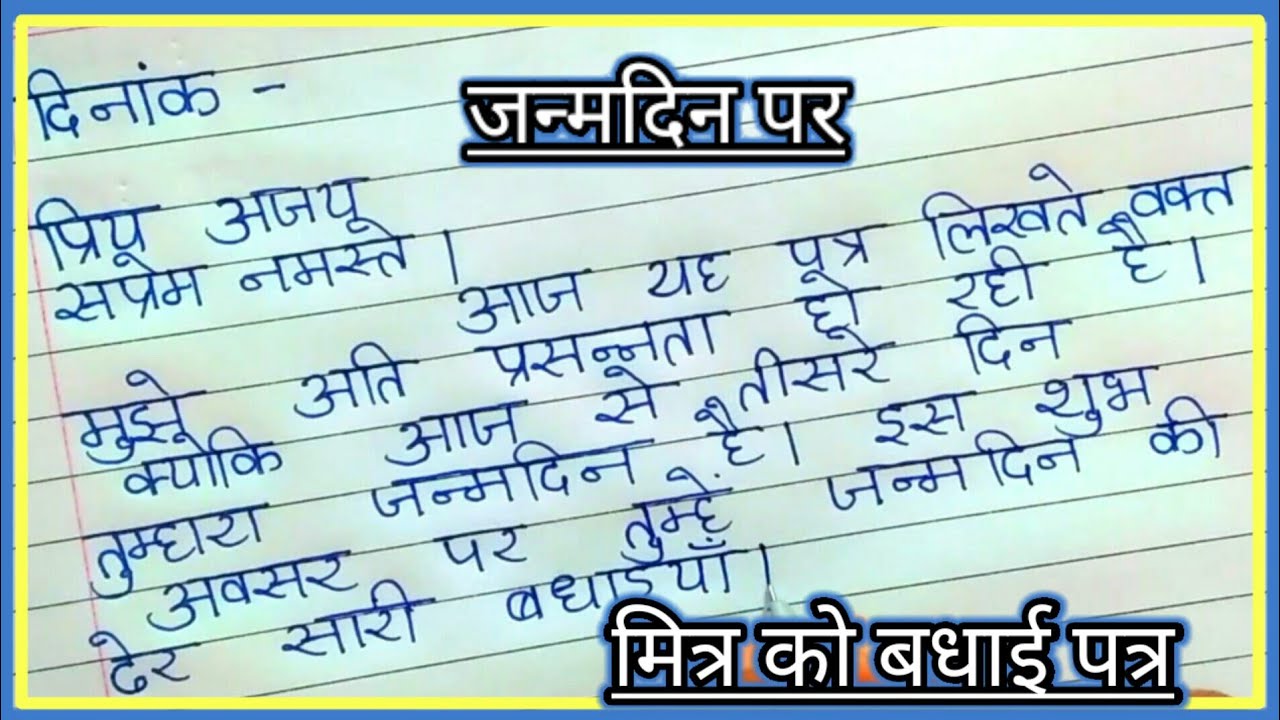 दिनांक -
जन्मदिन पर
प्रिय अजय
सप्रेम नमस्ते।
आज यह पत्र लिखते वक्त
मुझे अति प्रसन्नता हो रही है।
क्योकि आज से तीसरे दिन
तुम्हारा जन्मदिन है। इस शुभ
अवसर पर तुम्हें जन्मदिन की
ढेर सारी बधाईयाँ।
मित्र को बधाई पत्र